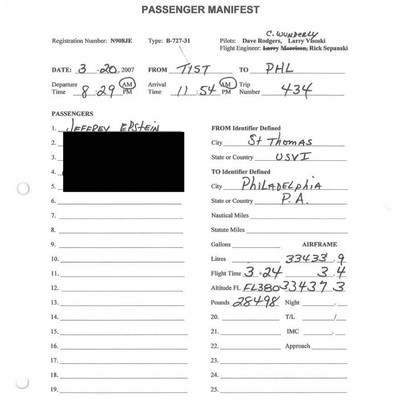 PASSENGER MANIFEST
C. Wunderly
Registration Number: N908JE Type: B-727-31 Pilots: Dave Rodgers, Larry Visoski
Flight Engineer: Larry Morrison, Rick Sepanski
DATE: 3-20, 2007 FROM TIST TO PHL
Departure Time 8:29 AM PM Arrival Time 11:54 AM PM Trip Number 434
PASSENGERS
1. JEFFREY EPSTEIN
2.
3.
4.
5.
6.
7.
8.
9.
10.
11.
12.
13.
14.
15.
16.
17.
18.
19.
FROM Identifier Defined
City St Thomas
State or Country USVI
TO Identifier Defined
City PhiLADeLphiA
State or Country P.A.
Nautical Miles
Statute Miles
Gallons AIRFRAME
Litres 33433.9
Flight Time 3+24 3.4
Altitude FL FL380 33437.3
Pounds 28498 Night
20. T/L /
21. IMC
22. Approach
23.
24.
25.